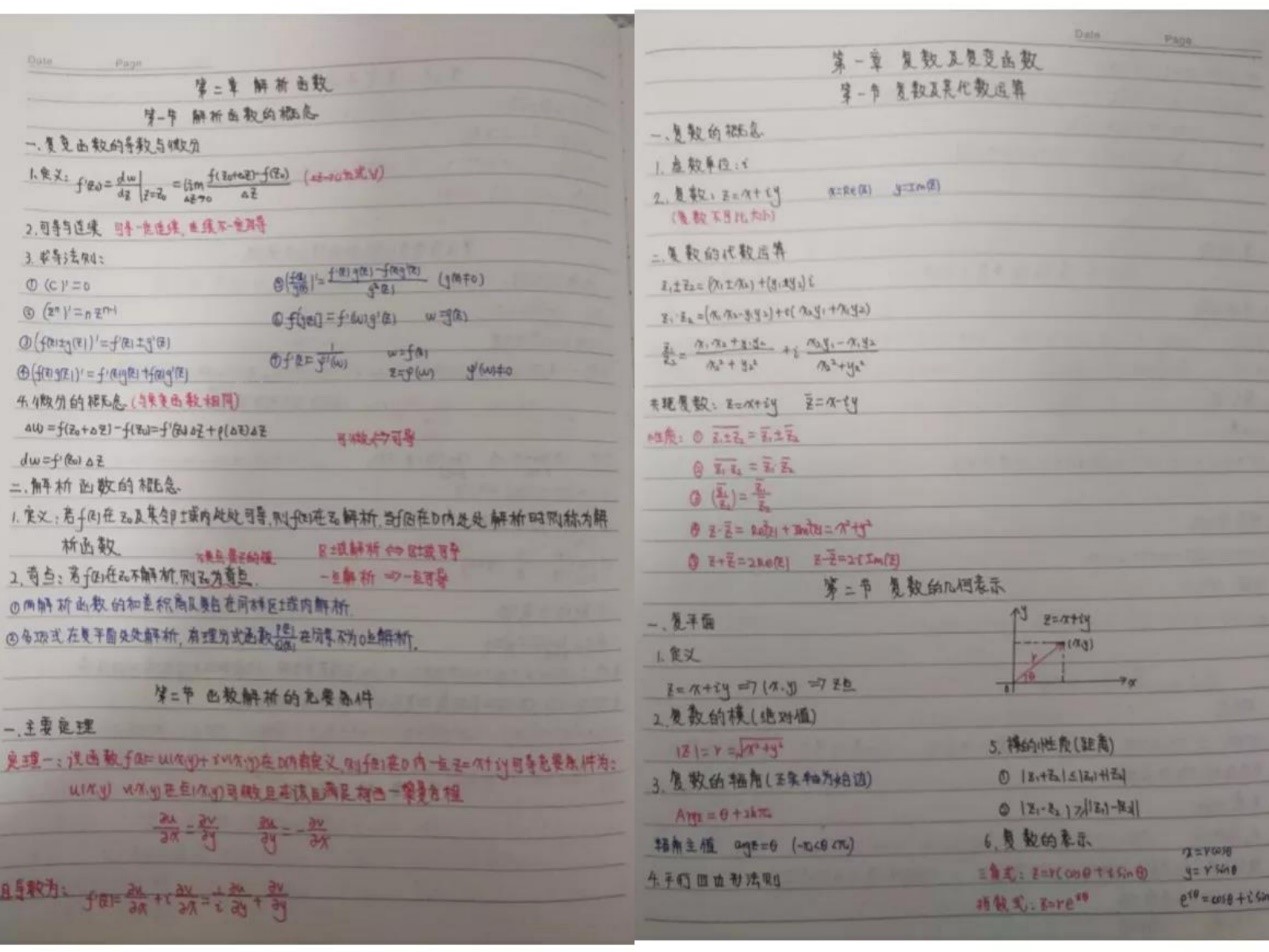 Date Page
第二章 解析函数
第一节 解析函数的概念
一、复变函数的导数与微分
1.定义: f'(z₀)=dw/dz|z=z₀=lim Δz→0 f(z₀+Δz)-f(z₀)/Δz
2.可导与连续 可导一定连续,连续不一定可导
3.求导法则:
① (C)'=0 ⑤(f(z)/g(z))'=f'(z)g(z)-f(z)g'(z)/g²(z) (g(z)≠0)
② (zⁿ)'=nzⁿ⁻¹ ⑥f[g(z)]=f'(w)g'(z) w=g(z)
③(f(z)±g(z))'=f'(z)±g'(z) ⑦f'(z)=1/φ'(w) w=f(z) z=φ(w) φ'(w)≠0
④(f(z)g(z))'=f'(z)g(z)+f(z)g'(z)
4.微分的概念(与实变函数相同)
Δw=f(z₀+Δz)-f(z₀)=f'(z₀)Δz+ρ(Δz)Δz 可微⇔可导
dw=f'(z₀)Δz
二、解析函数的概念
1.定义:若f(z)在z₀及其邻域内处处可导,则f(z)在z₀解析,当f(z)在D内处处解析时则称为解
析函数 区域解析⇔区域可导
2.奇点:若f(z)在z₀不解析,则z₀为奇点. 一点解析⇒一点可导
①两解析函数的和差积商及复合在同样区域内解析.
②多项式在复平面处处解析,有理分式函数P(z)/Q(z)在分母不为0点解析.
第二节 函数解析的充要条件
一、主要定理
定理一:设函数f(z)=u(x,y)+iv(x,y)在D内有定义,则f(z)在D内一点z=x+iy可导充要条件为:
u(x,y) v(x,y)在点(x,y)可微且在该点满足柯西一黎曼方程
∂u/∂x=∂v/∂y ∂u/∂y=-∂v/∂x
且导数为: f'(z)=∂u/∂x+i∂v/∂x=1/i ∂u/∂y+∂v/∂y
Date Page
第一章 复数及复变函数
第一节 复数及其代数运算
一、复数的概念
1.虚数单位:i
2.复数: z=x+iy x=Re(z) y=Im(z)
(复数不可比大小)
二、复数的代数运算
z₁±z₂=(x₁±x₂)+(y₁±y₂)i
z₁·z₂=(x₁x₂-y₁y₂)+i(x₂y₁+x₁y₂)
z₁/z₂=x₁x₂+y₁y₂/x₂²+y₂² +i x₂y₁-x₁y₂/x₂²+y₂²
共轭复数: z=x+iy z̄=x-iy
性质: ① z₁±z₂‾=z̄₁±z̄₂
② z₁·z₂‾=z̄₁·z̄₂
③ (z₁/z₂)‾=z̄₁/z̄₂
④ z·z̄=Re²(z)+Im²(z)=x²+y²
⑤ z+z̄=2Re(z) z-z̄=2iIm(z)
第二节 复数的几何表示
一、复平面
y z=x+iy
(x,y)
r θ
0 x
1.定义
z=x+iy ⇒(x,y) ⇒z点
2.复数的模(绝对值)
|z|=r=√x²+y²
3.复数的辐角(正实轴为始边)
Argz=θ+2kπ
辐角主值 argz=θ (-π<θ≤π)
4.平行四边形法则
5.模的性质(距离)
① |z₁+z₂|≤|z₁|+|z₂|
② |z₁-z₂|≥||z₁|-|z₂||
6.复数的表示
三角式: z=r(cosθ+isinθ) x=rcosθ y=rsinθ
指数式: z=re^iθ e^iθ=cosθ+isin